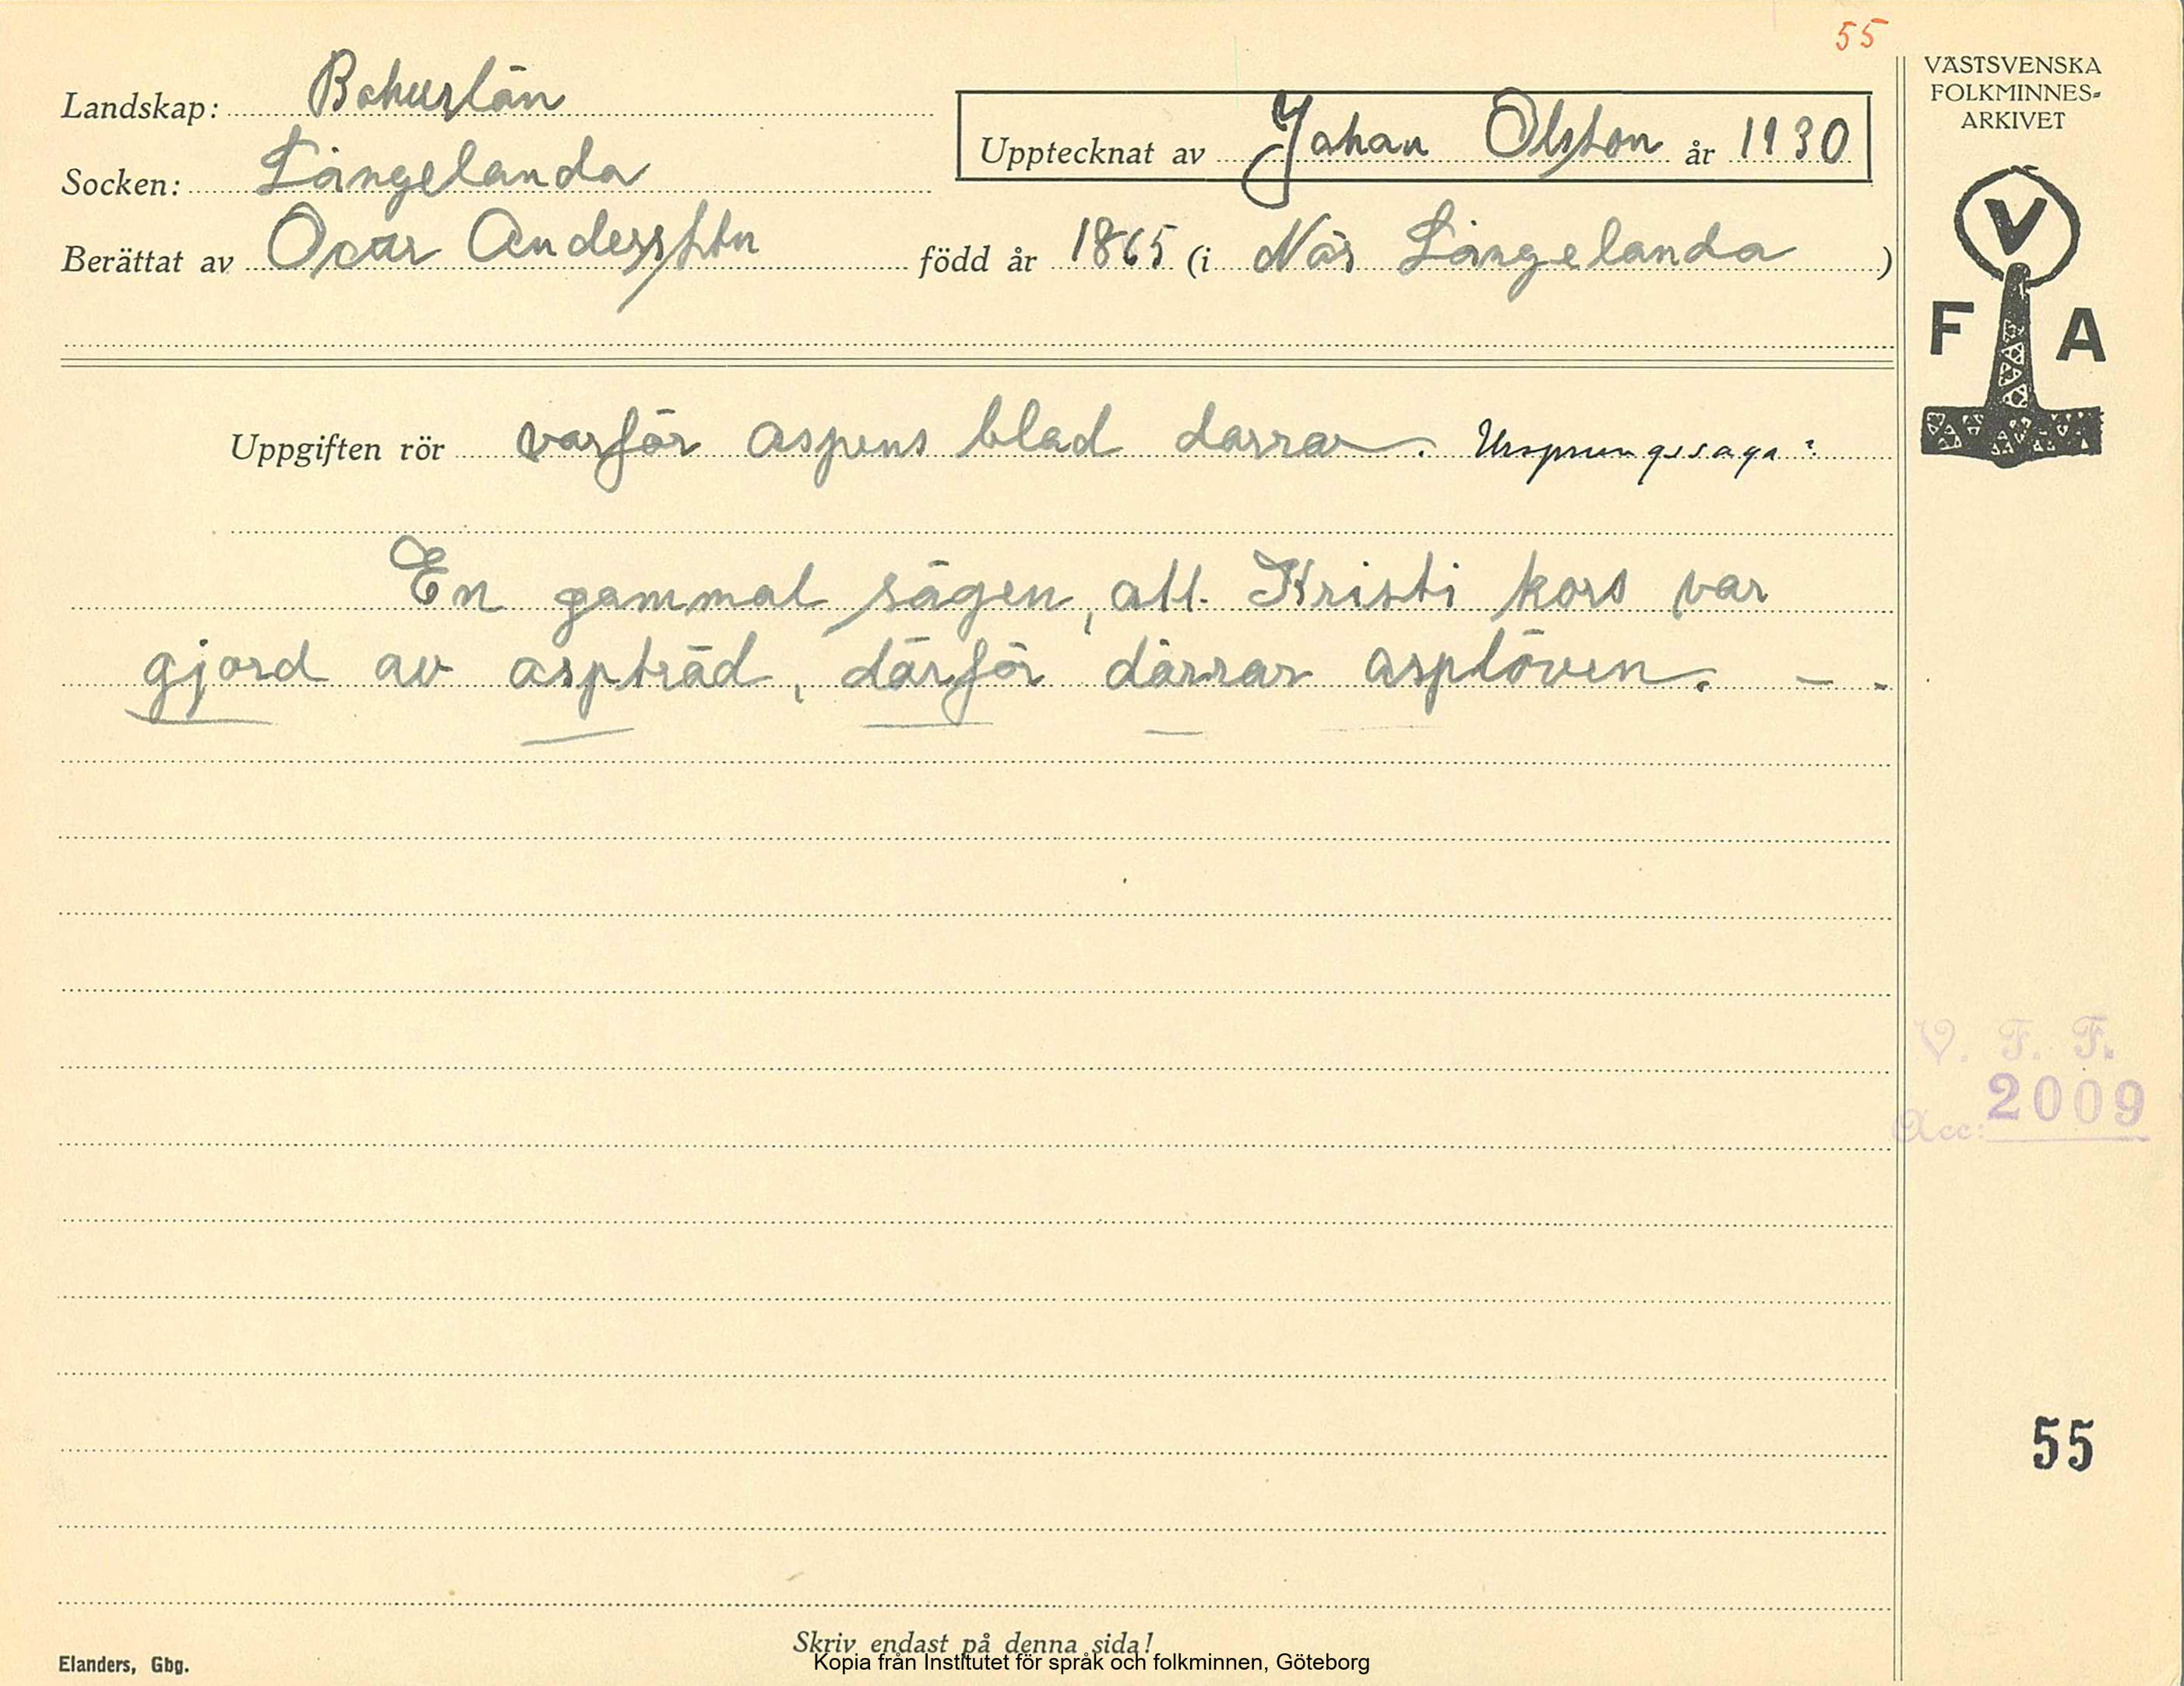 55
VÄSTSVENSKA
FOLKMINNES-
ARKIVET
Landskap: Bohuslän
Upptecknat av Johan Olsson år 1930
Socken: Långelanda
Berättat av Oscar Andersson född år 1865 (i Näs Långelanda )
V
F A
Uppgiften rör varför aspens blad darrar. Ursprungssaga?
En gammal sägen, att Kristi kors var
gjord av aspträd, därför därrar asplöven. - -
V. F. F.
Acc: 2009
55
Skriv endast på denna sida!
Kopia från Institutet för språk och folkminnen, Göteborg
Elanders, Gbg.